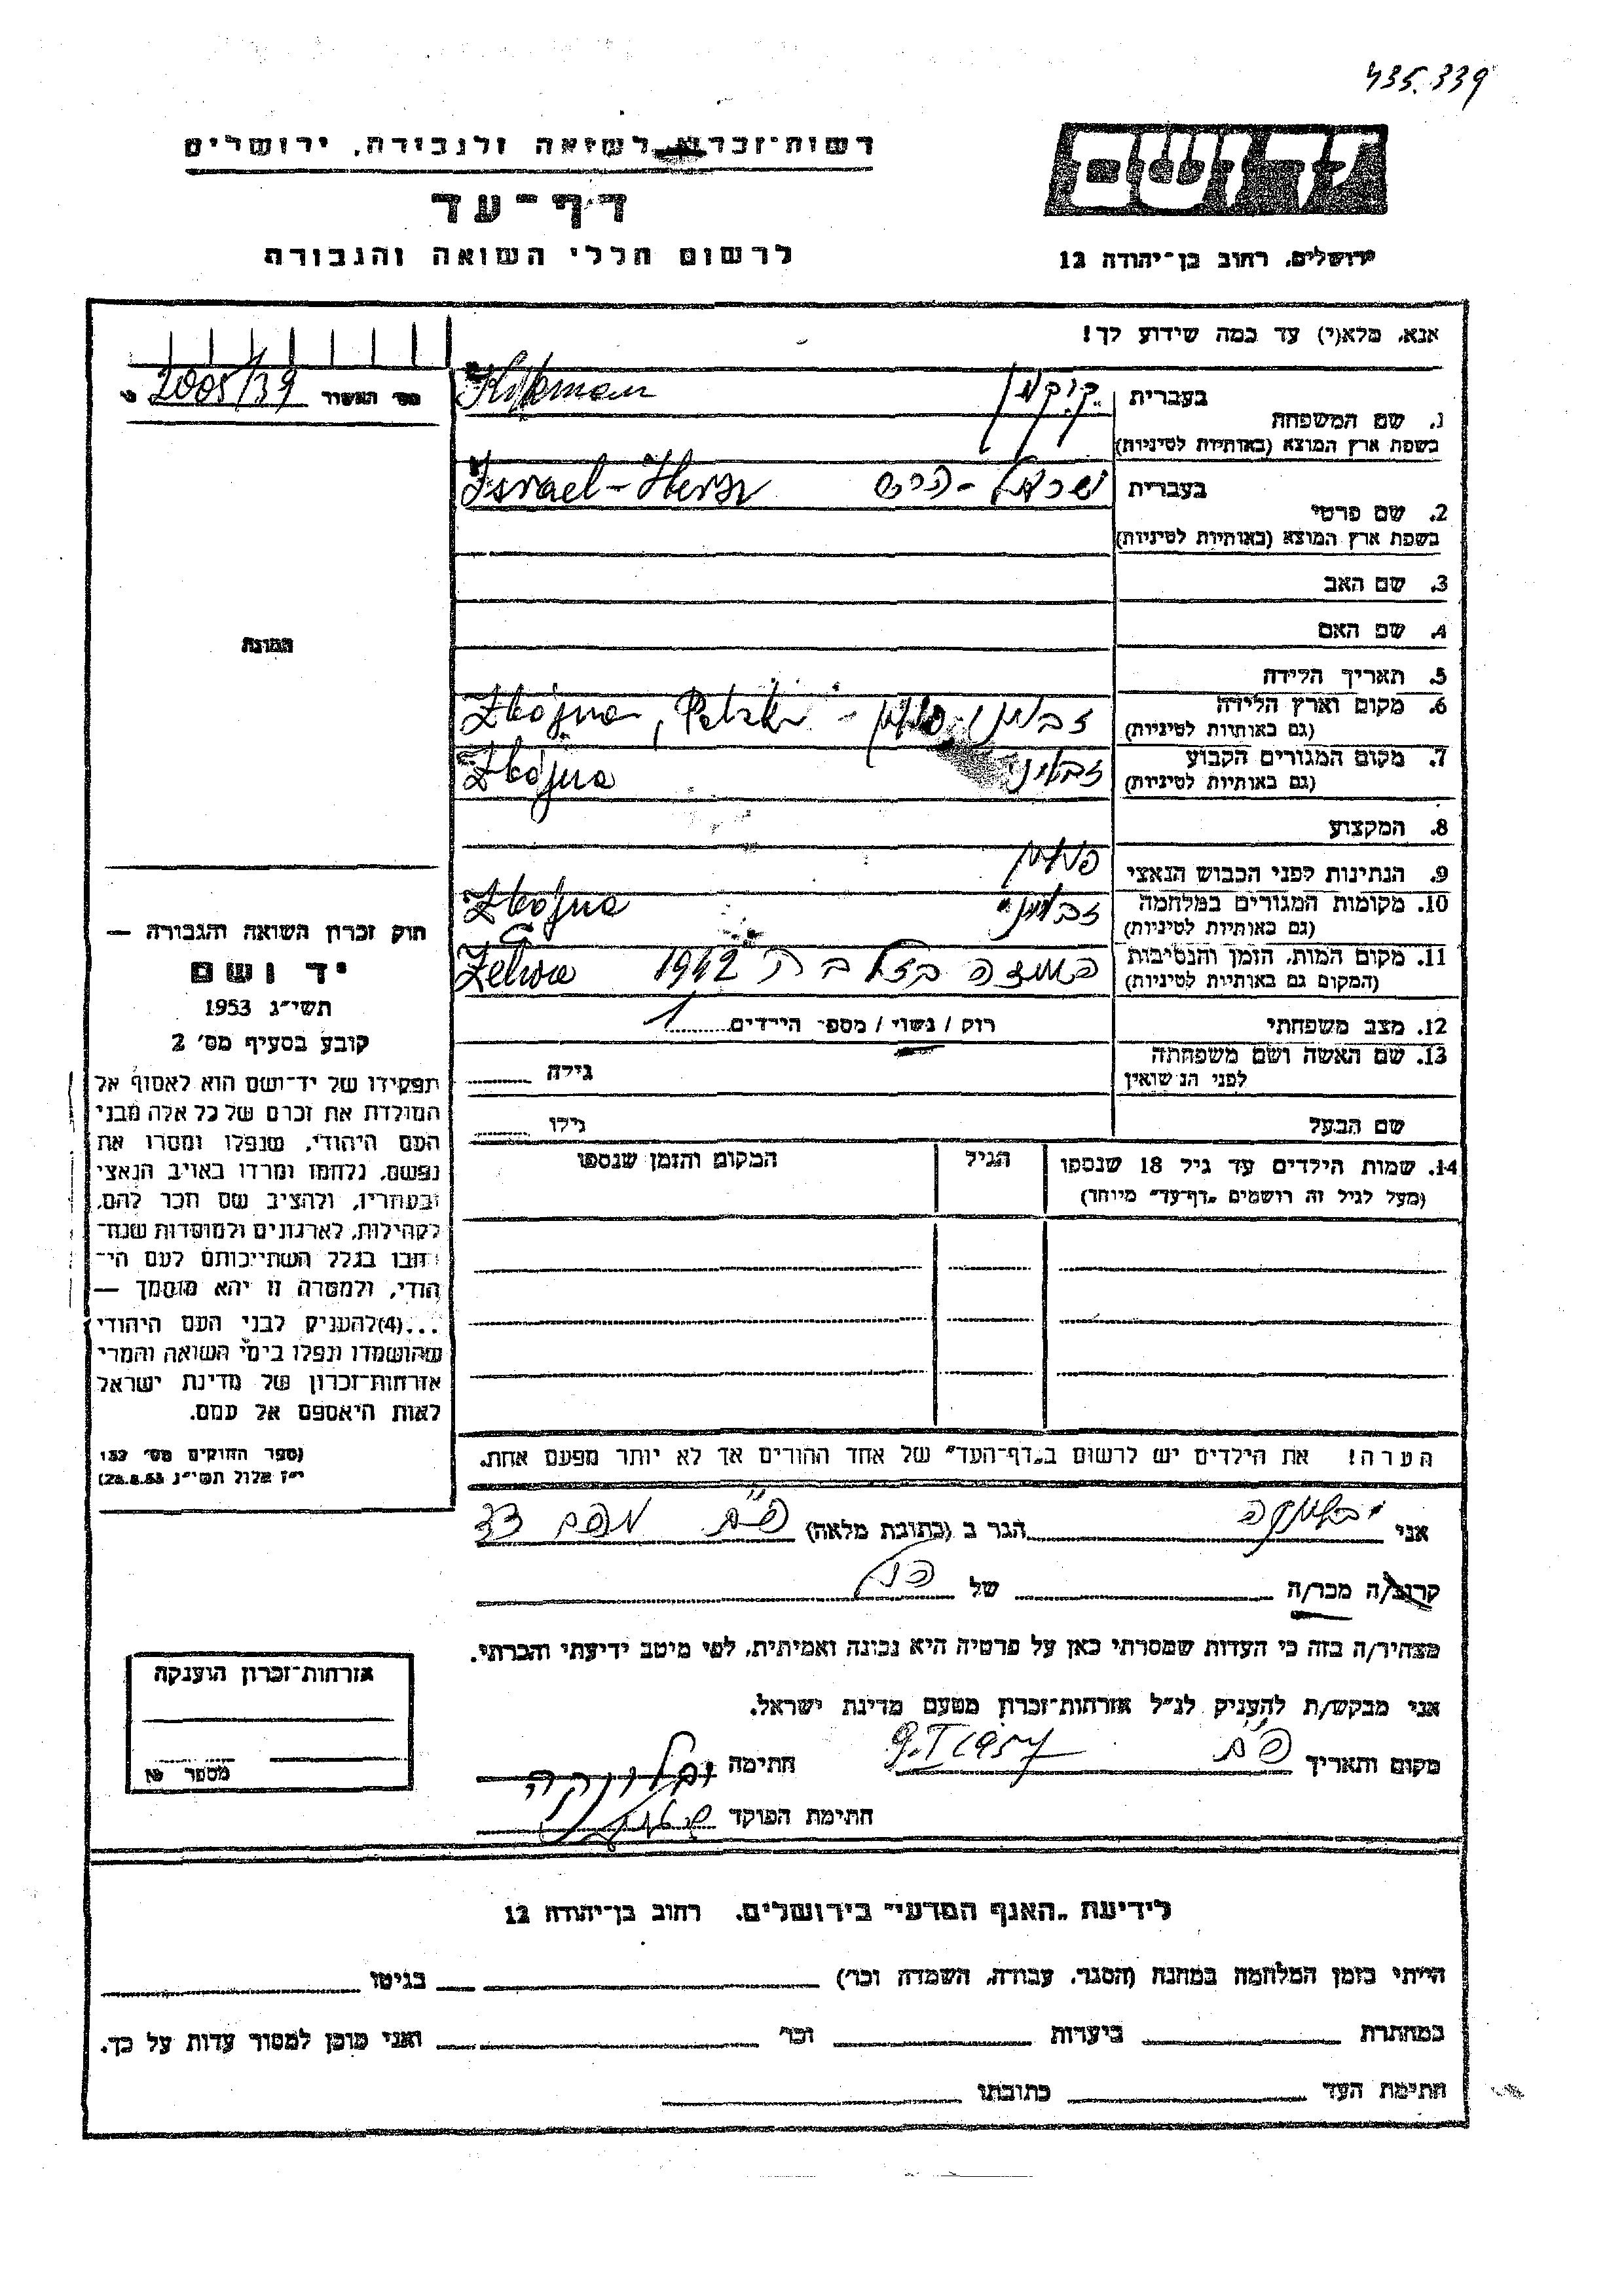 435.339
רשות־זכרון לשואה ולגבורה, ירושלים
דף־עד
לרשום חללי השואה והגבורה
יד ושם
ירושלים, רחוב בן־יהודה 12
אנא, מלא(י) עד כמה שידוע לך!
מס׳ האשור 2005/39
1. שם המשפחה
בעברית
בשפת ארץ המוצא (באותיות לטיניות)
2. שם פרטי
בעברית ישראל - הירש Israel-Hersz
בשפת ארץ המוצא (באותיות לטיניות)
3. שם האב
4. שם האם
5. תאריך הלידה
6. מקום וארץ הלידה
(גם באותיות לטיניות)
7. מקום המגורים הקבוע
(גם באותיות לטיניות)
Zbójna
8. המקצוע
9. הנתינות לפני הכבוש הנאצי פולין
10. מקומות המגורים במלחמה
(גם באותיות לטיניות)
Zbójna
11. מקום המות, הזמן והנסיבות
(המקום גם באותיות לטיניות)
1942
12. מצב משפחתי רוק / נשוי / מספר הילדים 1
13. שם האשה ושם משפחתה
לפני הנשואין
גילה
שם הבעל גילו
14. שמות הילדים עד גיל 18 שנספו הגיל המקום והזמן שנספו
(מעל לגיל זה רושמים "דף־עד" מיוחד)
הערה! את הילדים יש לרשום ב"דף־העד" של אחד ההורים אך לא יותר מפעם אחת.
התמונה
חוק זכרון השואה והגבורה —
יד ושם
תשי״ג 1953
קובע בסעיף מס׳ 2
תפקידו של יד־ושם הוא לאסוף אל
המולדת את זכרם של כל אלה מבני
העם היהודי, שנפלו ומסרו את
נפשם, נלחמו ומרדו באויב הנאצי
ובעוזריו, ולהציב שם וזכר להם,
לקהילות, לארגונים ולמוסדות שנח־
רבו בגלל השתייכותם לעם הי־
הודי, ולמטרה זו יהא מוסמך —
...(4) להעניק לבני העם היהודי
שהושמדו ונפלו בימי השואה והמרי
אזרחות־זכרון של מדינת ישראל
לאות היאספם אל עמם.
(ספר החוקים מס׳ 132
י״ז אלול תשי״ג 28.8.53)
אני הגר ב (כתובת מלאה)
קרוב/ה מכר/ה של
מצהיר/ה בזה כי העדות שמסרתי כאן על פרטיה היא נכונה ואמיתית, לפי מיטב ידיעתי והכרתי.
אני מבקש/ת להעניק לנ״ל אזרחות־זכרון מטעם מדינת ישראל.
מקום ותאריך 9.I 1957 חתימה
חתימת הפוקד
אזרחות־זכרון הוענקה
מספר
לידיעת "האגף המדעי" בירושלים, רחוב בן־יהודה 12
הייתי בזמן המלחמה במחנה (הסגר, עבודה, השמדה וכו׳) בגיטו
במחתרת ביערות וכו׳ ואני מוכן למסור עדות על כך.
חתימת העד כתובתו